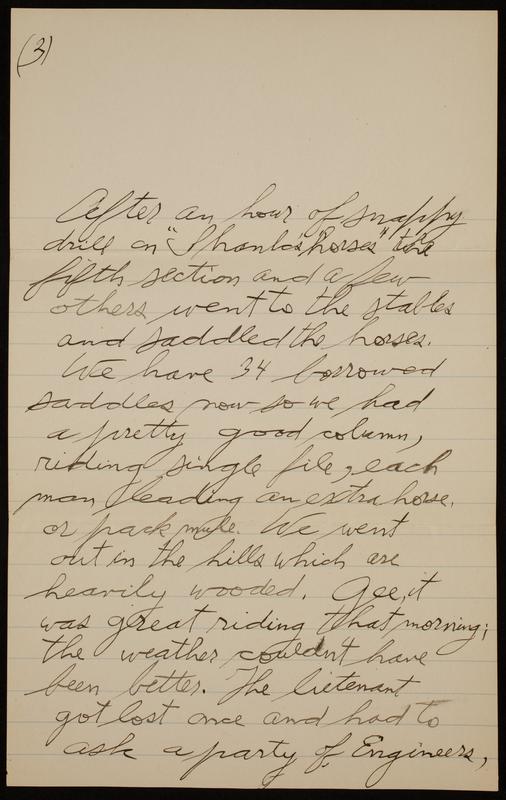 (3)
After an hour of snappy
drill on "Shank's "horses" the
fifth section and a few
others went to the stables
and saddled the horses.
We have 34 borrowed
saddles now so we had
a pretty good column,
riding single file, each
man leading an extra horse.
or pack mule. We went
out in the hills which are
heavily wooded. Gee, it
was great riding that morning;
the weather couldn't have
been better. The lietenant
got lost once and had to
ask a party of Engineers,